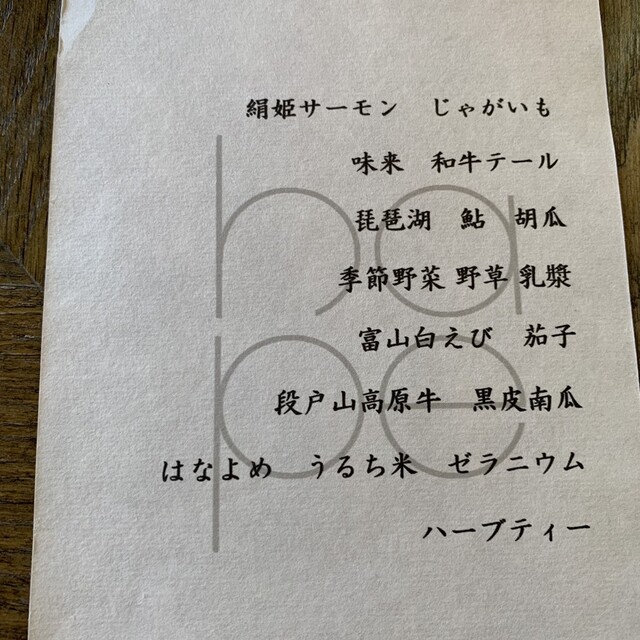 絹姫サーモン　じゃがいも
味来　和牛テール
琵琶湖　鮎　胡瓜
季節野菜 野草 乳漿
富山白えび　茄子
段戸山高原牛　黒皮南瓜
はなよめ　うるち米　ゼラニウム
ハーブティー
ha
pe